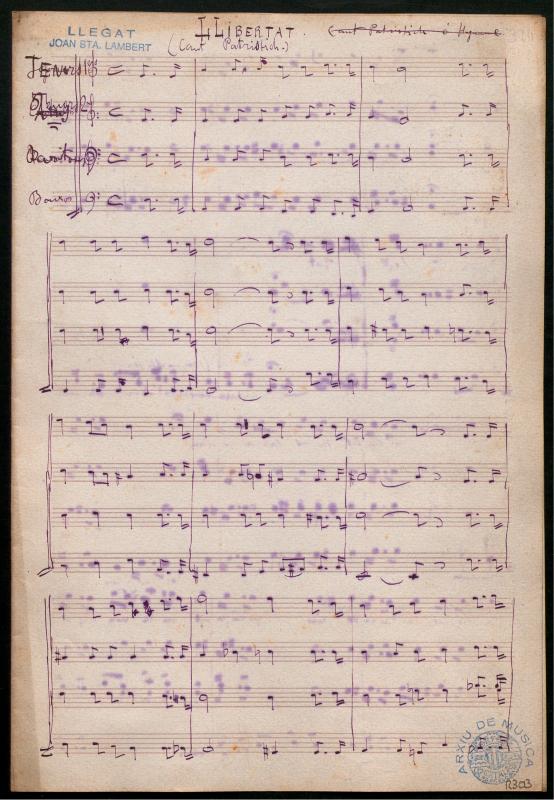 LLEGAT
JOAN STA. LAMBERT
LLIBERTAT.
(Cant Patriòtich.)
Cant Patriòtich o Hymne
Tenors 1
Tenors 2
Baríton
Baixos
ARXIU DE MÚSICA
R303